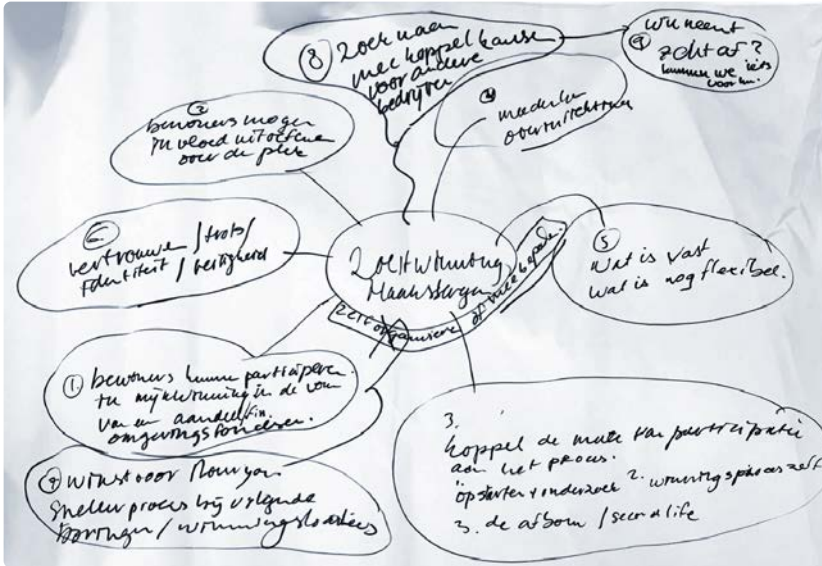 8 Zoek naar
mee koppel kansen
voor andere
bedrijven
wie neemt
9 zout af?
kunnen we iets
voor hen.
2
bewoners mogen
invloed uitoefenen
over de plek
4
meedenken
6
vertrouwen / trots /
identiteit / veiligheid
Zoutwinning
Haaksbergen
zelf organiseren of mee bepalen.
5
wat is vast
wat is nog flexibel.
1. bewoners kunnen participeren
in mijnwinning in de vorm
van een aandeel fin.
omgevingsfondsen.
7 winst voor
sneller proces bij volgende
boringen / winningslocaties
3.
koppel de mate van participatie
aan het proces.
opstarten + onderzoek 2. winningsproces zelf
3. de afbouw / second life